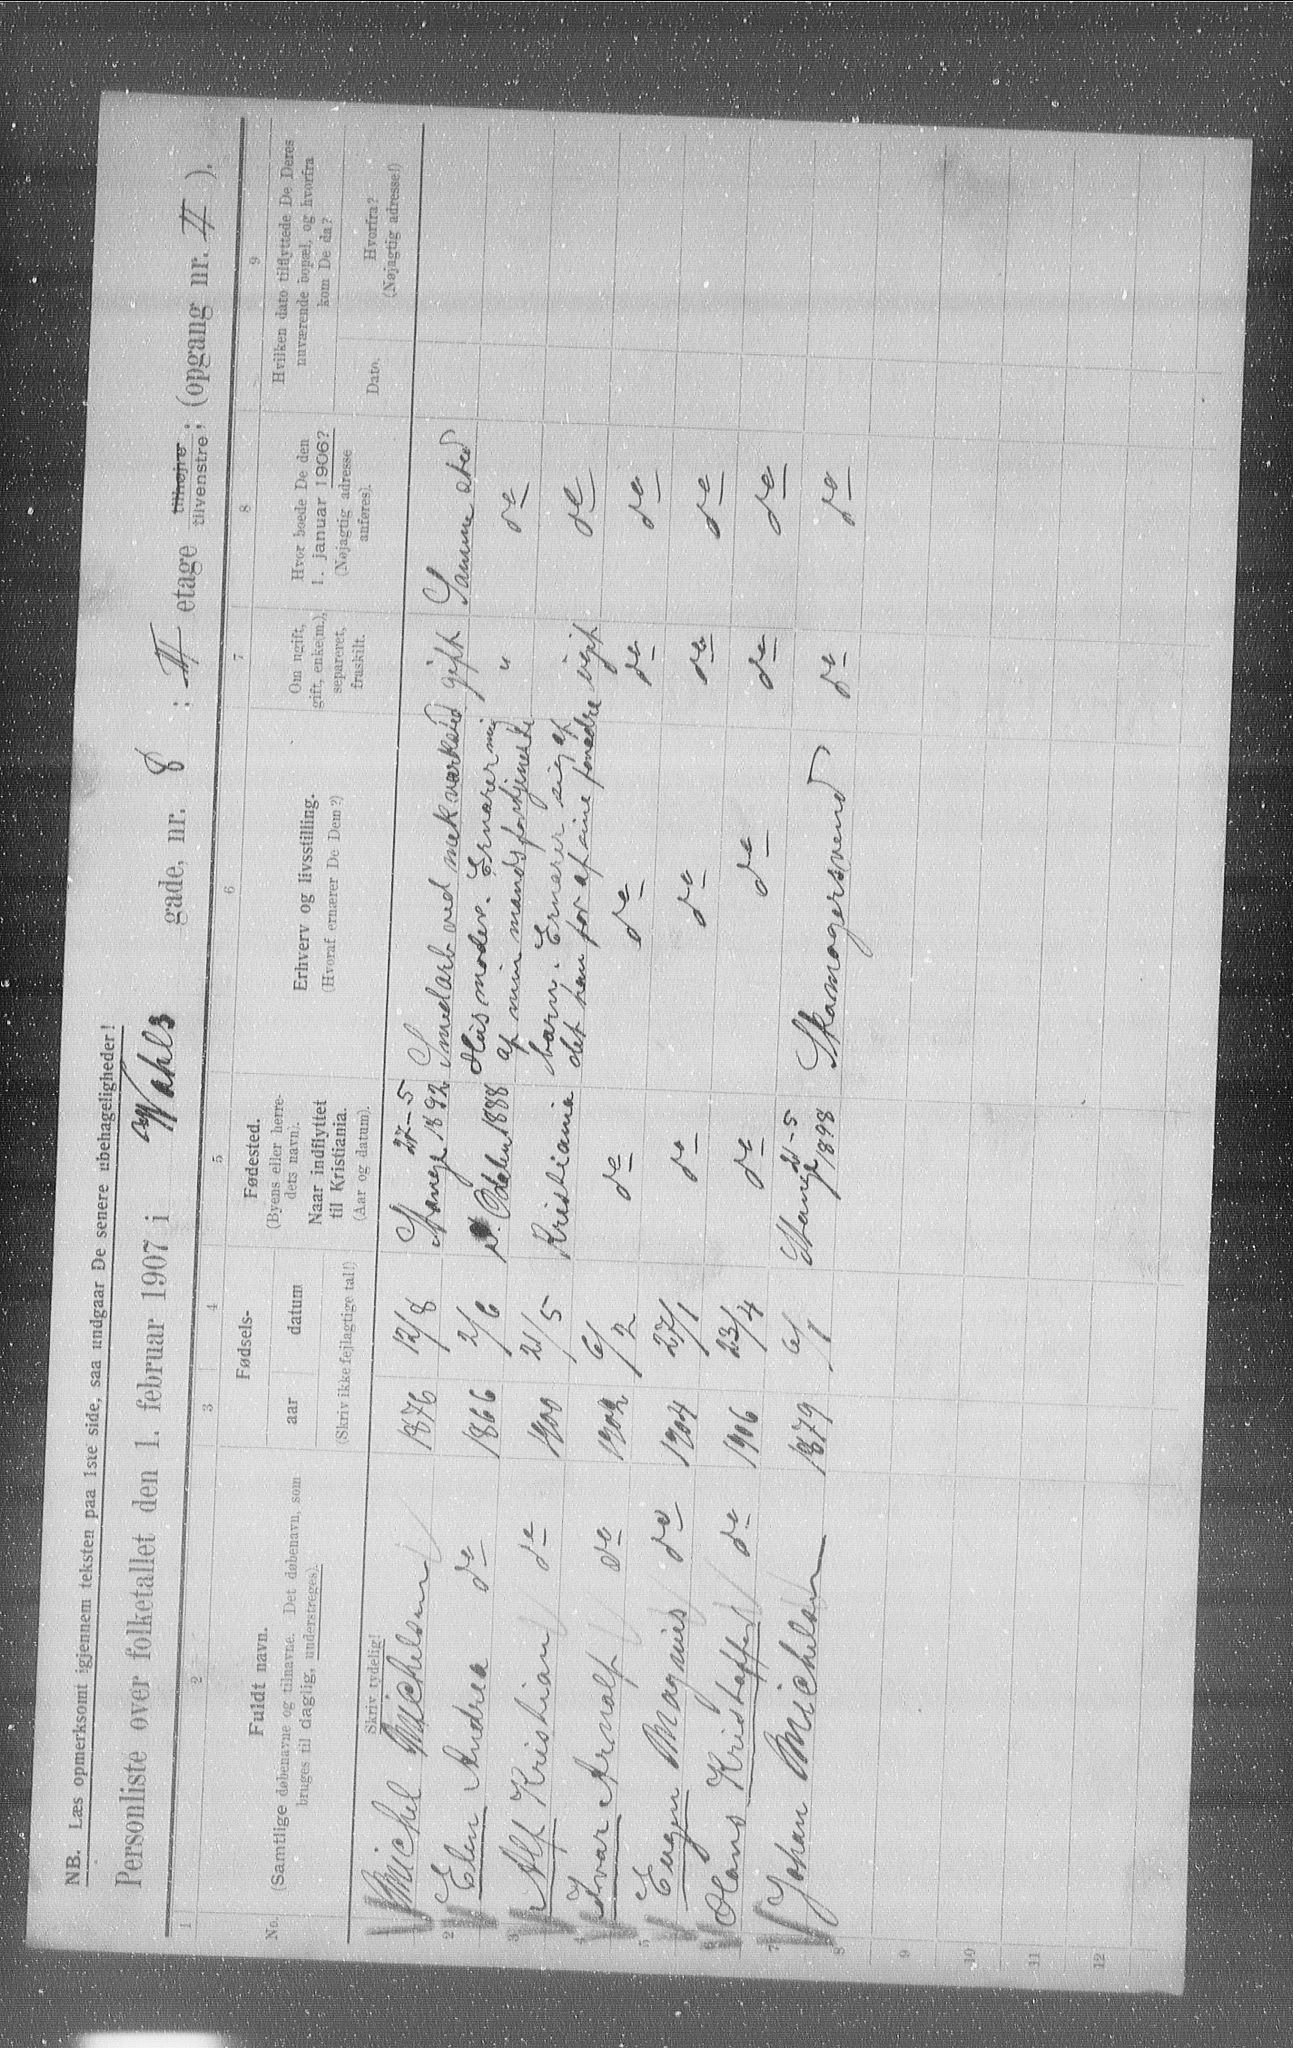 NB. Læs opmerksomt igjennem teksten paa 1ste side, saa undgaar De senere ubehageligheder!
Personliste over folketallet den 1. februar 1907 i Wahls gade, nr. 8 : II etage tilhøjre tilvenstre; (opgang nr. II ).
1 2 3 4 5 6 7 8 9
No.
Fuldt navn.
(Samtlige døbenavne og tilnavne. Det døbenavn, som
bruges til daglig, understreges).
Fødsels-
aar datum
Fødested.
(Byens eller herre-
dets navn).
Naar indflyttet
til Kristiania.
(Aar og datum).
Erhverv og livsstilling.
(Hvoraf ernærer De Dem?)
Om ugift,
gift, enke(m.),
separeret,
fraskilt.
Hvor boede De den
1. januar 1906?
(Nøjagtig adresse
anføres).
Hvilken dato tilflyttede De Deres
nuværende bopæl, og hvorfra
kom De da?
Skriv tydelig!
(Skriv ikke fejlagtige tal!)
Dato.
Hvorfra?
(Nøjagtig adresse!)
Michel Michelsen 1876 12/8 Stange 27-5 1892 Smedarb ved mek værksted gift Samme sted
2 Elen Andrea do 1866 2/6 Odalen 1888 Husmoder. Ernærer mig af min mands fortjeneste " do
3 Alf Kristian do 1900 21/5 Kristiania barn. Ernærer sig af det han faar af sine forældre ugift do
4 Ivar Arnalf do 1902 6/2 do do do do
5 Eugen Magnus do 1904 27/1 do do do do
6 Hans Kristoffer do 1906 23/4 do do do do
7 Johan Michelsen 1879 6/1 Stange 21-5 1898 Skomagersvend do do
8
9
10
11
12